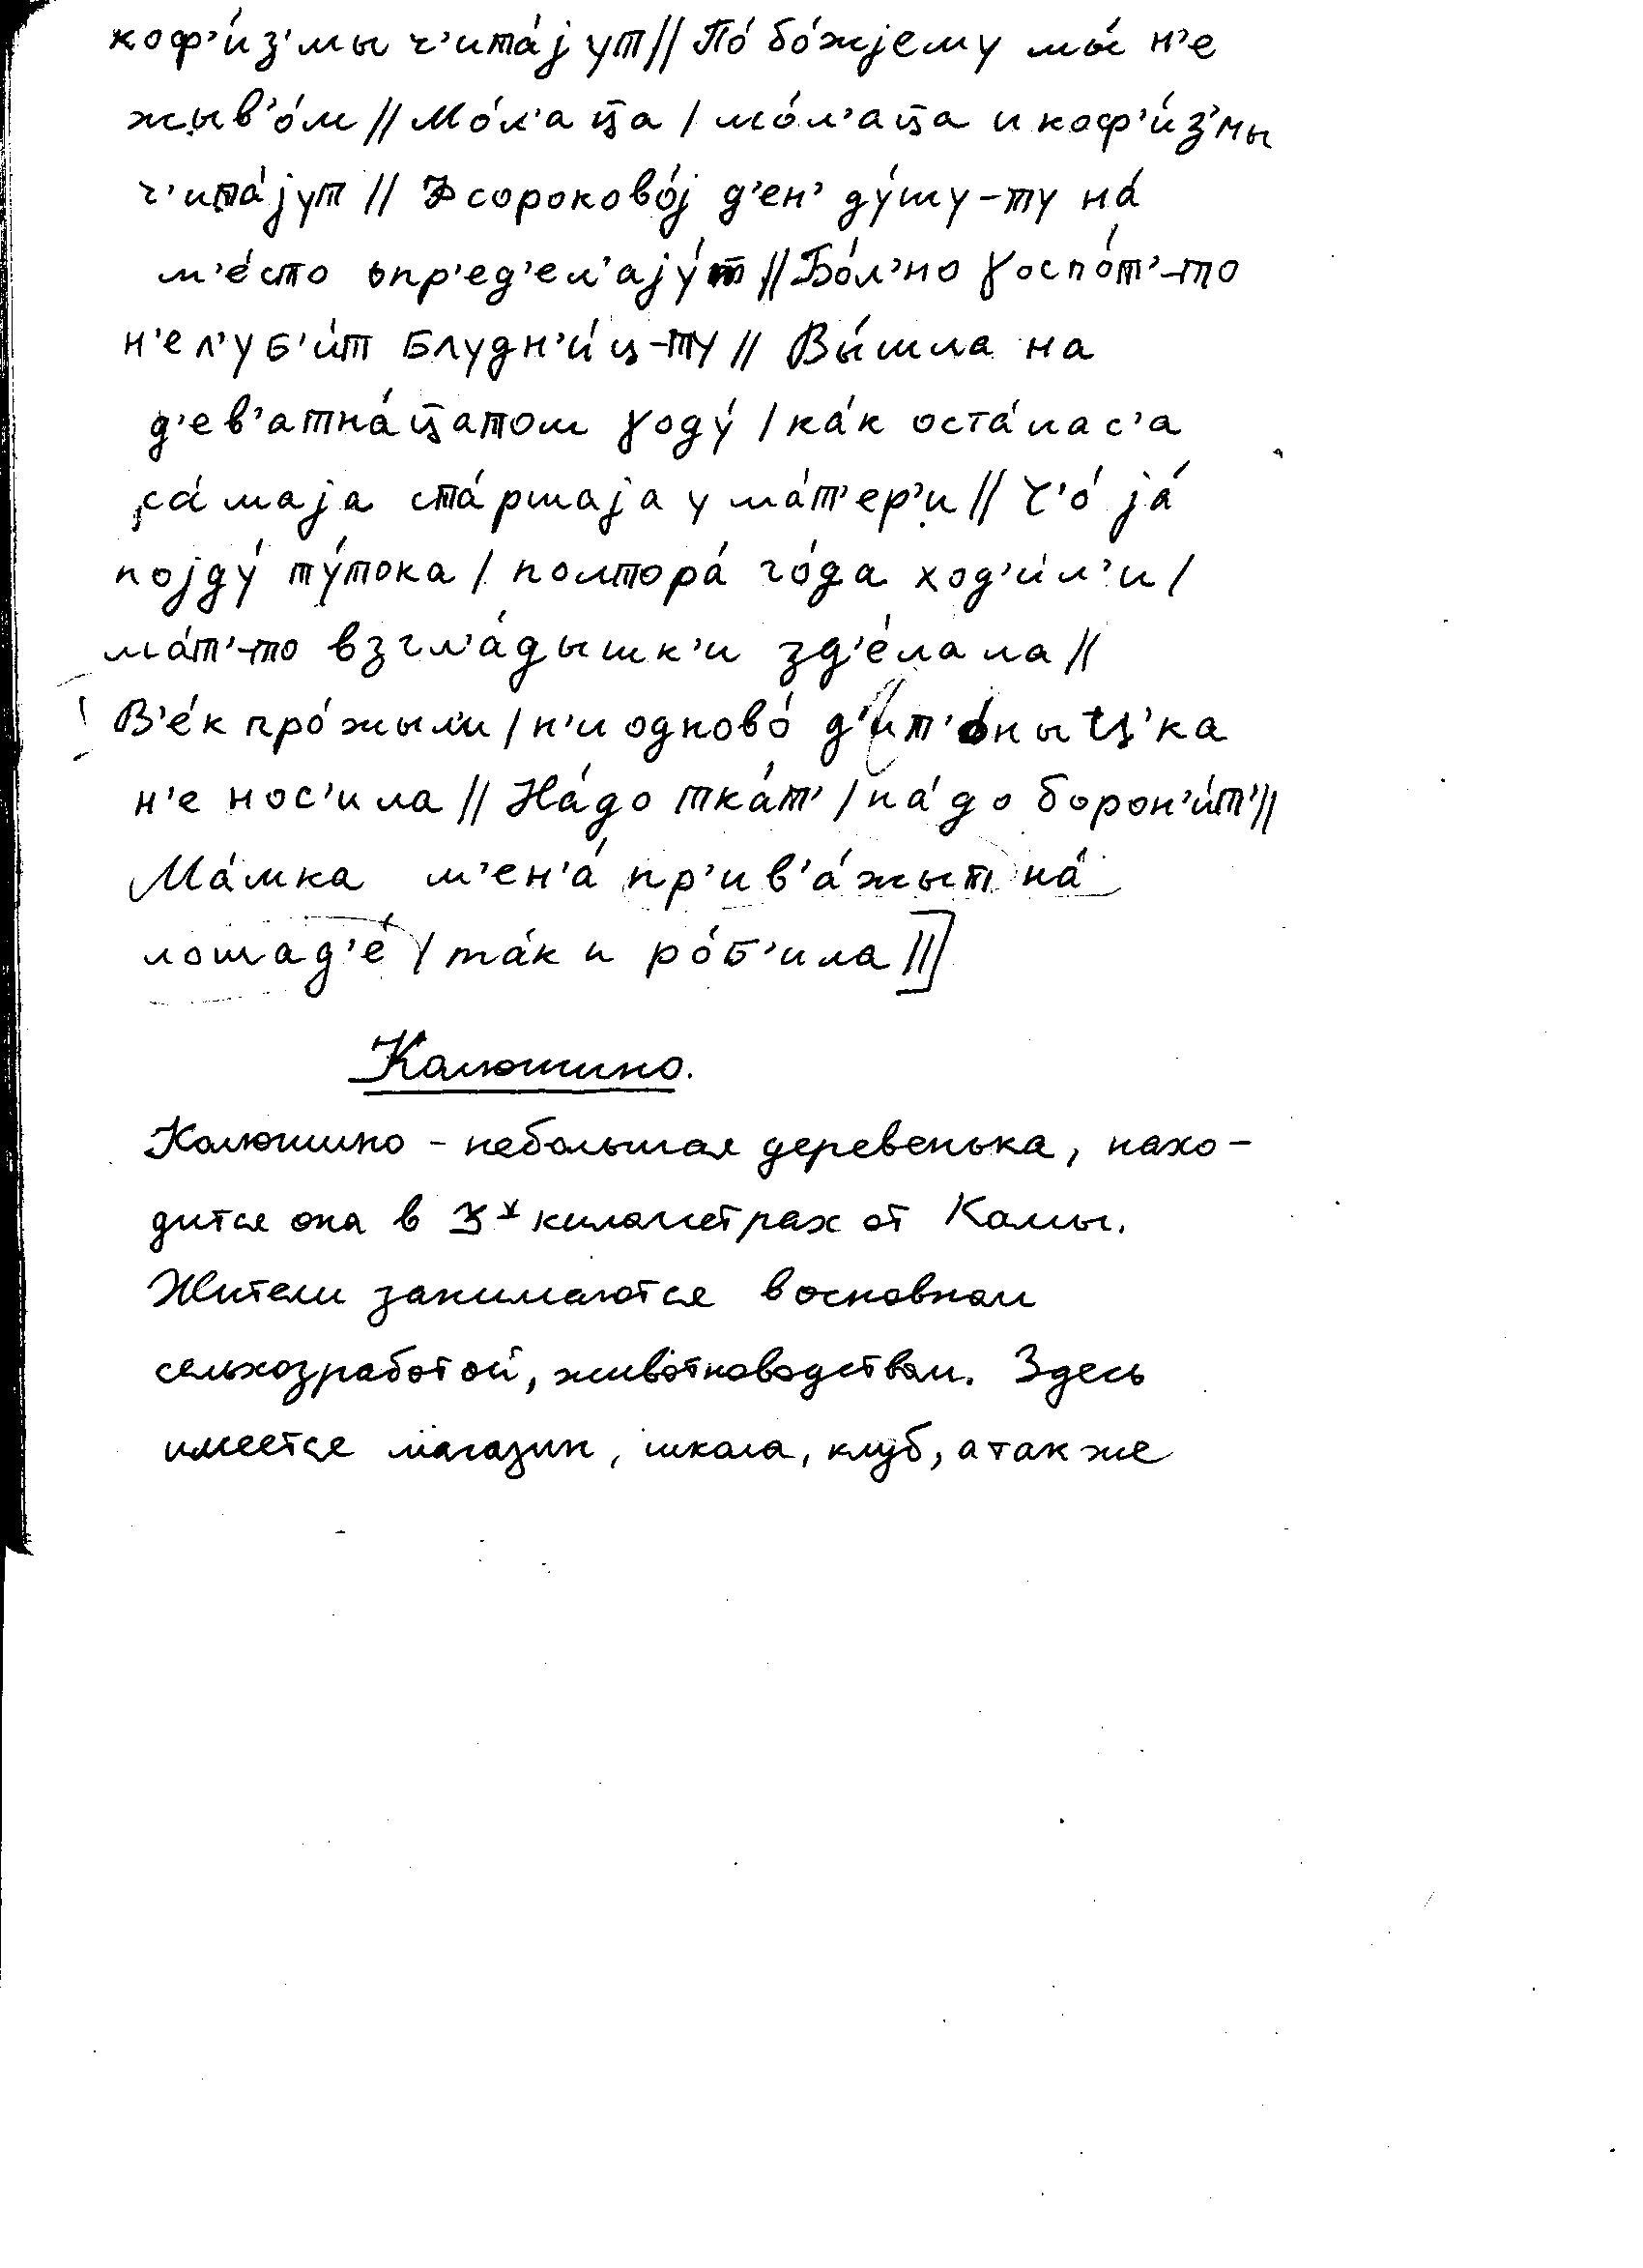 коф'и́з'мы ч'ита́jут// По́ бо́жjему мы́ н'е
жыв'о́м // Мо́л'аца / мо́л'аца и коф'и́з'мы
ч'ита́jут // Ф сороково́j д'ен' ду́шу-ту на́
м'е́сто опр'ед'ел'аjу́т // Бо́л'но γоспо́т'-то
н'е л'уб'и́т блудн'и́ц-ту // Вы́шла на
д'ев'атна́цатом γоду́ / ка́к оста́лас'а
са́маjа ста́ршаjа у ма́т'ер'и // Ч'о́ jа́
поjду́ ту́тока / полтора́ го́да ход'и́л'и /
ма́т'-то взгл'а́дышк'и зд'е́лала //
В'е́к про́жыли / н'и одново́ д'ит'о́ныц'ка
н'е нос'ила // На́до тка́т' / на́до борон'и́т' //
Ма́мка м'ен'а́ пр'ив'а́жыт на́
лошад'е́ / та́к и ро́б'ила //]
Калюшино.
Калюшино - небольшая деревенька, нахо-
дится она в 3х километрах от Камы.
Жители занимаются в основном
сельхозработой, животноводством. Здесь
имеется магазин, школа, клуб, а также